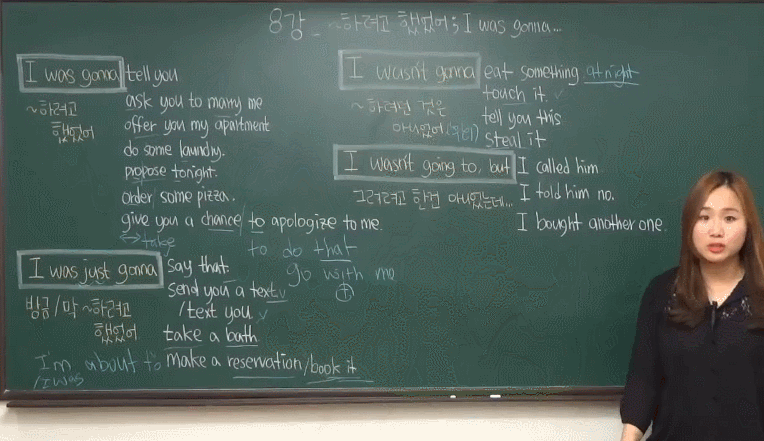 8강 _ ~하려고 했었어; I was gonna...
I was gonna tell you.
~하려고 했었어
ask you to marry me
offer you my apartment
do some laundry.
propose tonight.
order some pizza.
give you a chance/ to apologize to me.
↔ take
to do that
go with me
I was just gonna say that
방금/막 ~하려고 했었어
send you a text
/text you
take a bath
make a reservation/book it
I'm about to
/I was
I wasn't gonna eat something at night
~하려던 것은 아니었어
touch it
tell you this
steal it
I wasn't going to, but I called him.
그러려고 한건 아니었는데...
I told him no.
I bought another one.